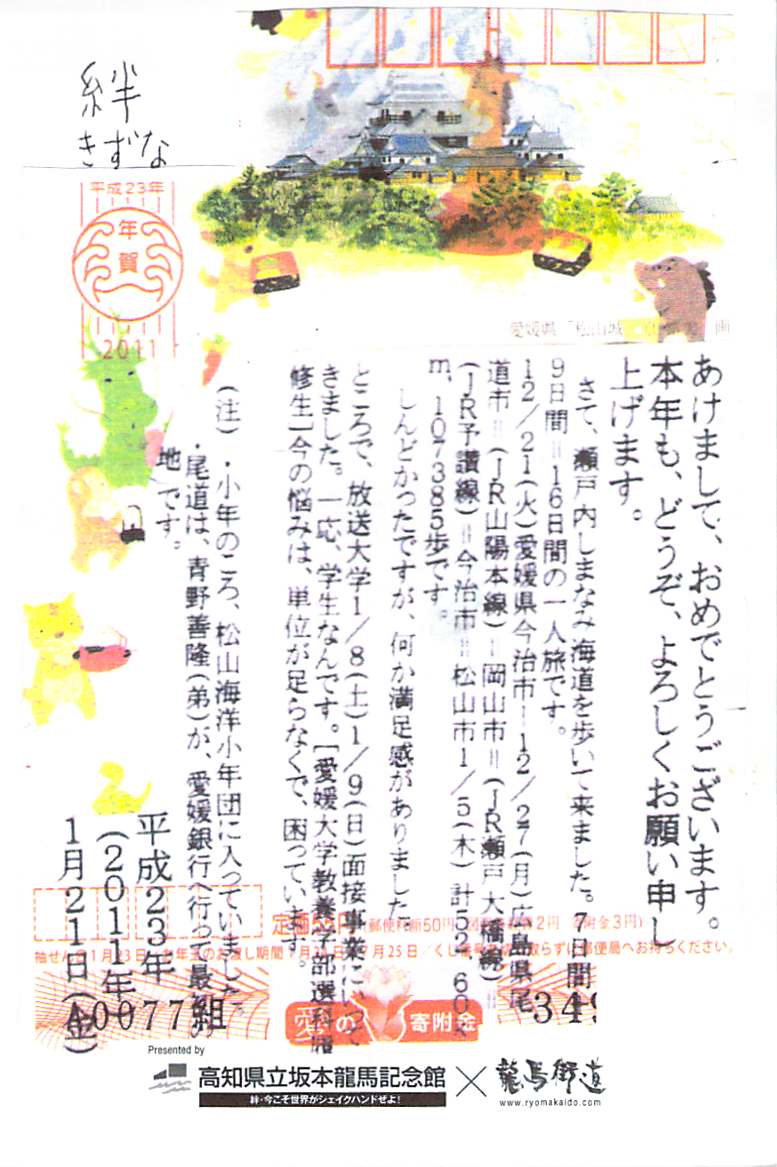 絆
きずな
平成23年
年賀
2011
愛媛県「松山城」
画
あけまして、おめでとうございます。
本年も、どうぞ、よろしくお願い申し
上げます。
さて、瀬戸内しまなみ海道を歩いて来ました。7日間＝
9日間＝16日間の一人旅です。
12／21(火)愛媛県今治市―12／27(月)広島県尾
道市＝(JR山陽本線)＝岡山市＝(JR瀬戸大橋線)＝
(JR予讃線)＝今治市＝松山市1／5(木)計
m、107385歩です。
しんどかったですが、何か満足感がありました。
ところで、放送大学1／8(土)1／9(日)面接事業にいって
きました。一応、学生なんです。[愛媛大学教養学部選科履
修生]今の悩みは、単位が足らなくて、困っています。
(注)・小年のころ、松山海洋小年団に入っていました。
・尾道は、青野善隆(弟)が、愛媛銀行へ行って最初の
地です。
平成23年
(2011年
1月21日(金)
定価55円
郵便料額50円
附金3円)
A0077組
349
愛の
寄附金
Presented by
高知県立坂本龍馬記念館
絆・今こそ世界がシェイクハンドぜよ！
×
龍馬街道
www.ryomakaido.com